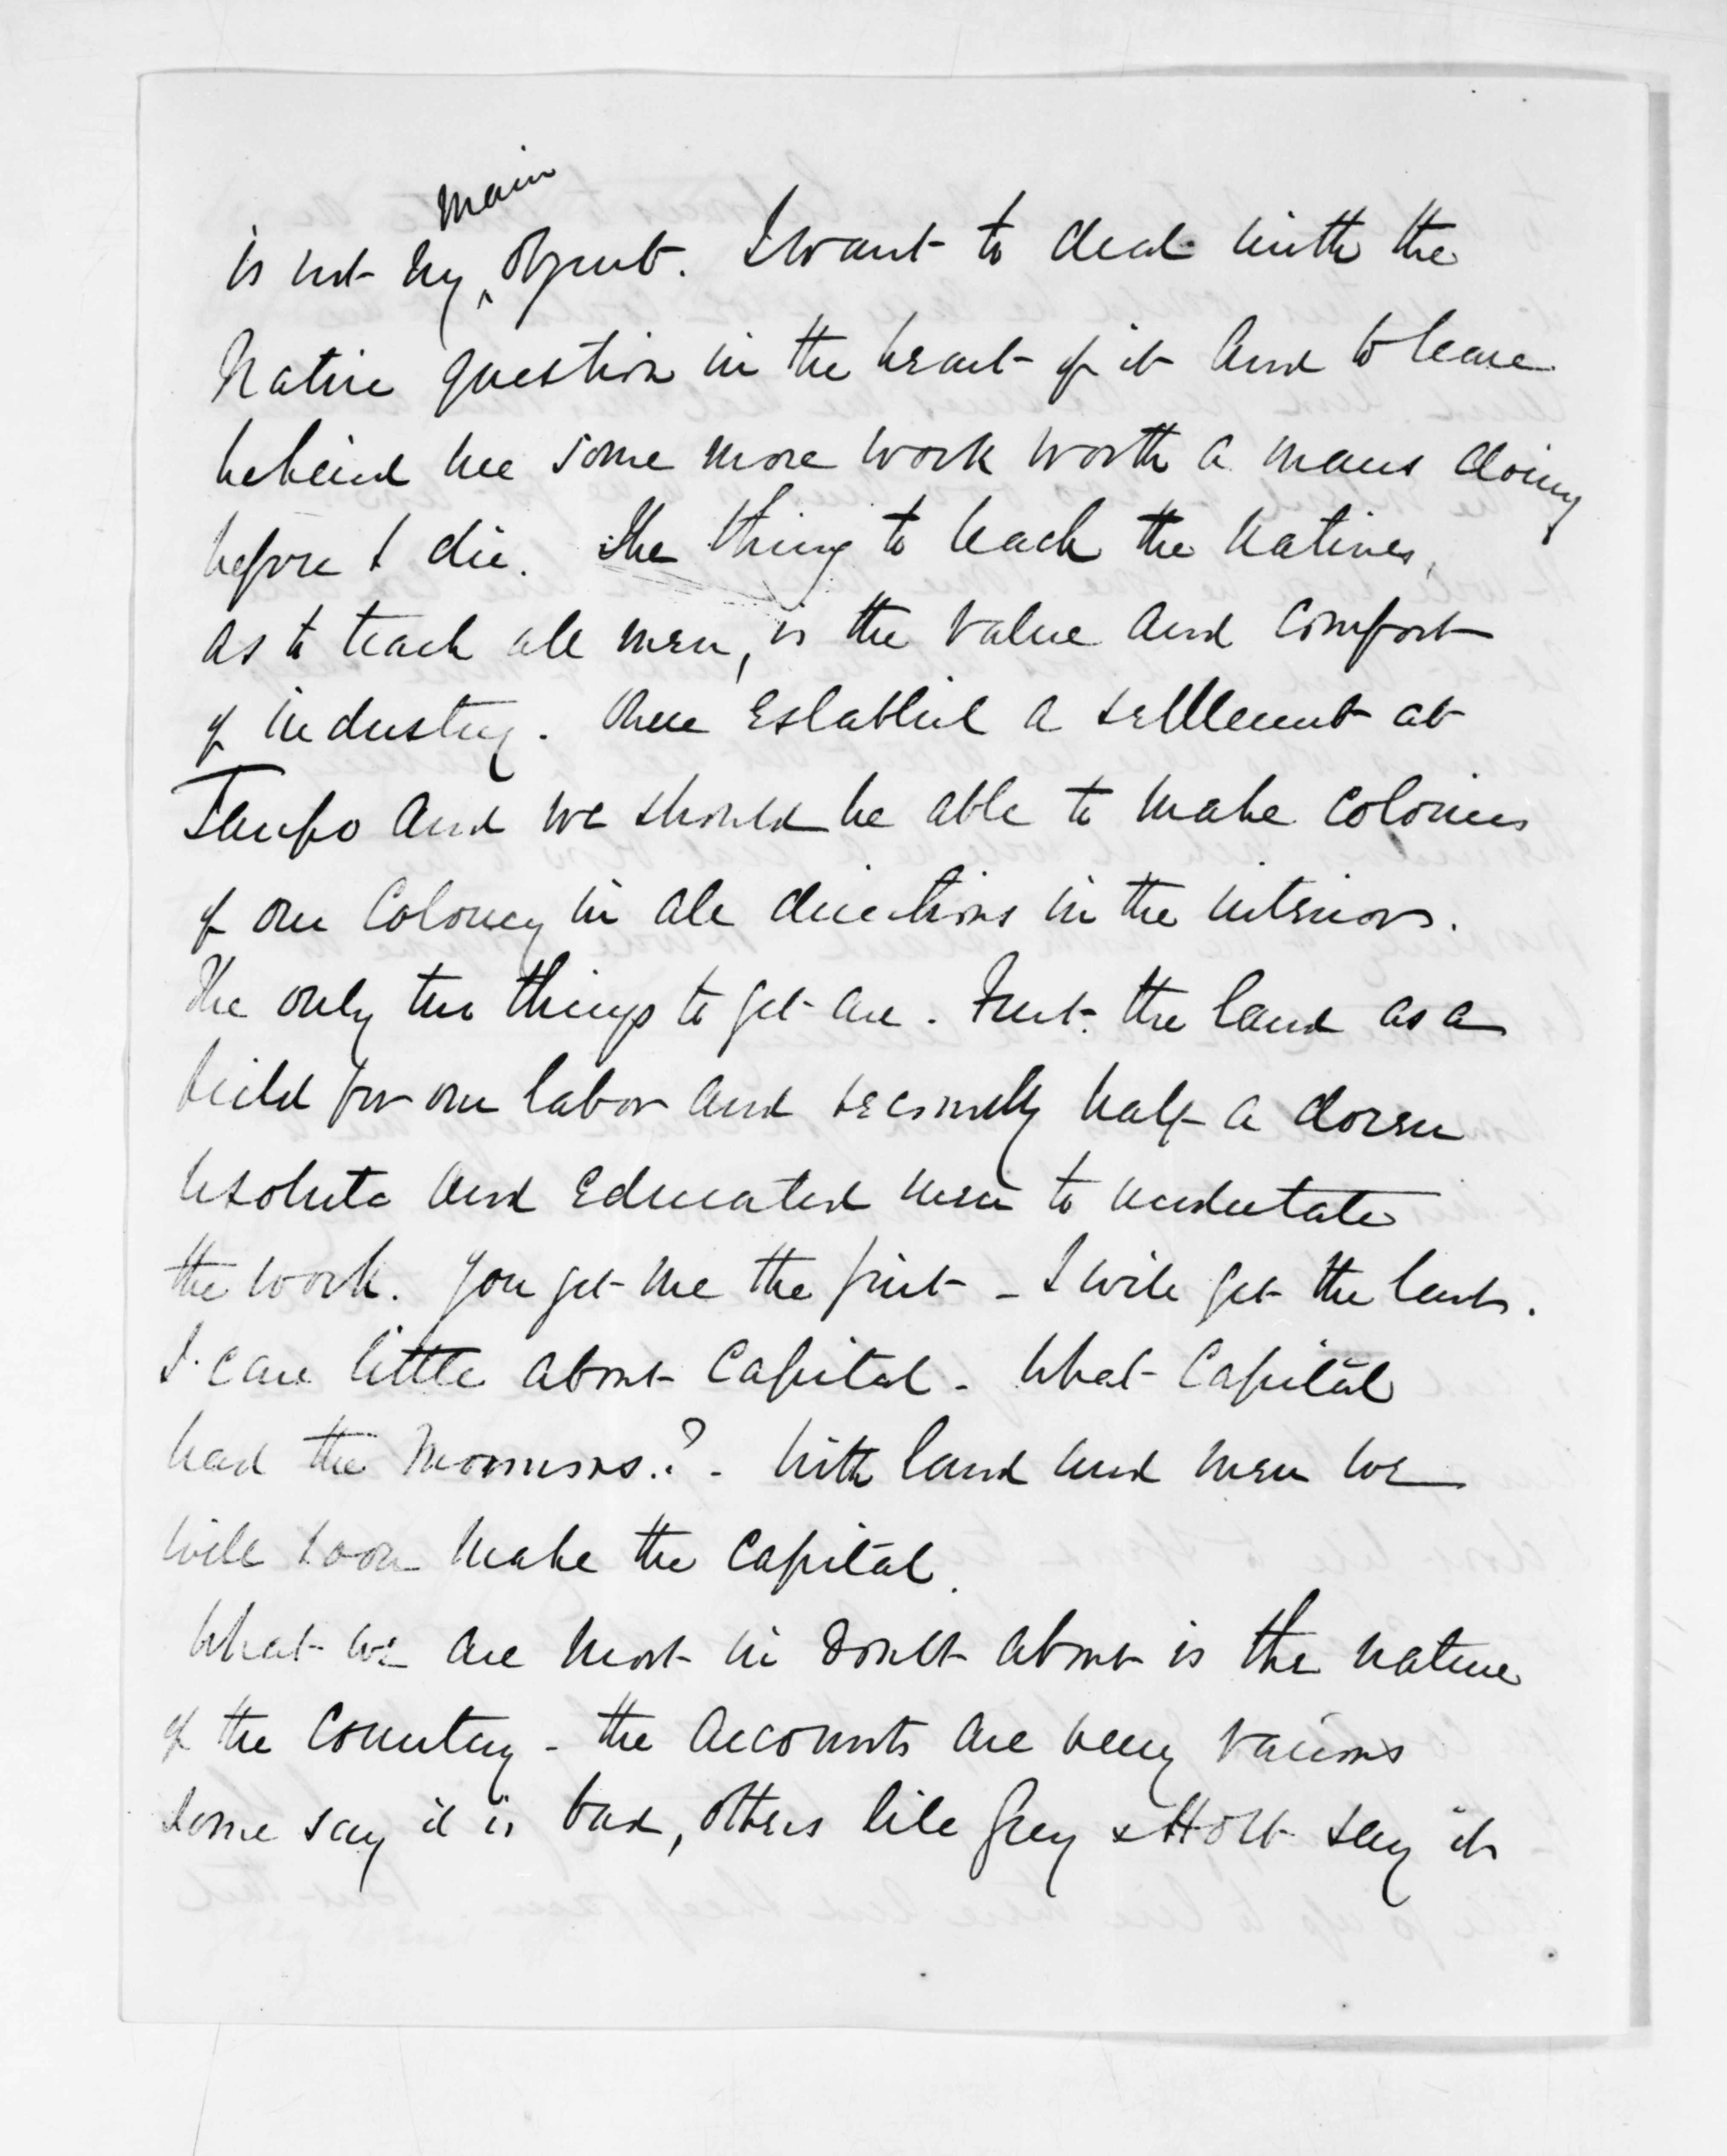 main
is not my object. I want to deal with the
Native question in the heart of it and to leave
behind me some more work worth a mans doing
before I die. The thing to teach the Natives,
as to teach all men, is the value and comfort
of industry. Once establish a settlement at
Taupo and we should be able to make colonies
of our Colony in all directions in the interior.
The only two things to get are. First. the land as a
field for our labor and secondly half a dozen
resolute and educated men to undertake
the work. You get me the first – I will get the last.
I care little about Capital – What Capital
had the Mormons.? – With land and men we
will soon make the Capital.
What we are most in doubt about is the nature
of the Country – the accounts are very various
some say it is bad, others like Grey & Holt say it